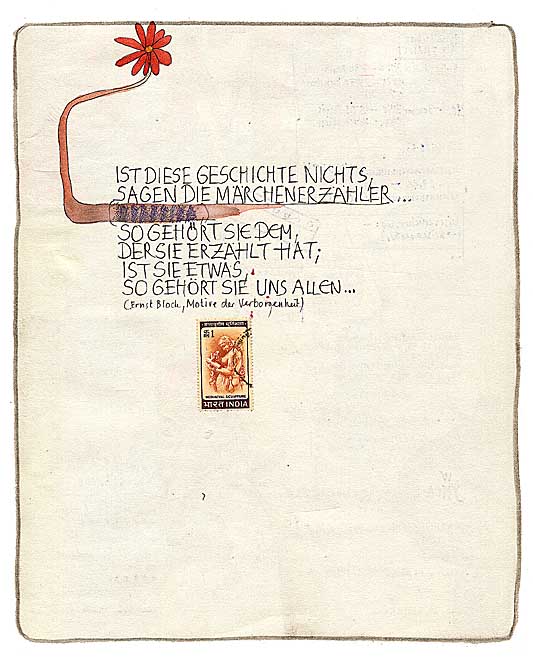 IST DIESE GESCHICHTE NICHTS,
SAGEN DIE MÄRCHENERZÄHLER...
SO GEHÖRT SIE DEM,
DER SIE ERZÄHLT HAT;
IST SIE ETWAS,
SO GEHÖRT SIE UNS ALLEN...
(Ernst Bloch, Motive der Verborgenheit)
1
MEDIAEVAL SCULPTURE
भारत INDIA